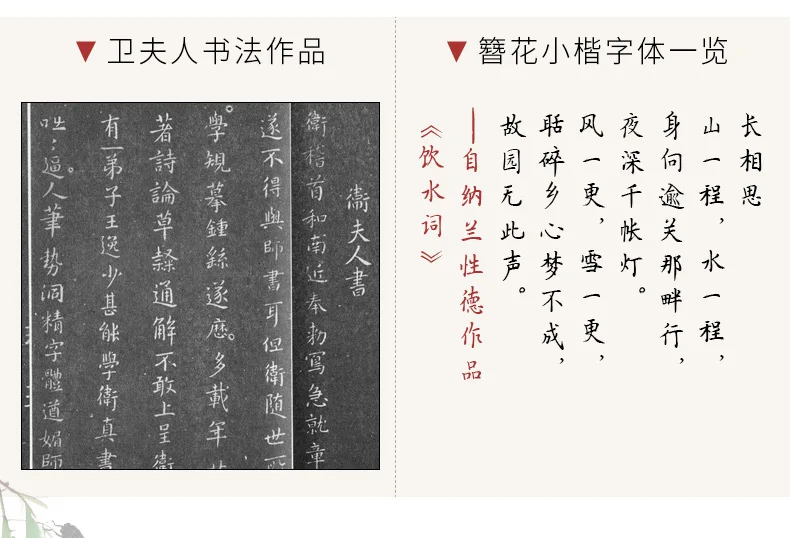 卫夫人书法作品
衞夫人書
衛稽首和南近奉勑寫急就章
遂不得與師書耳但衛随世所
學規摹鍾繇遂歷多載年廿
著詩論草隸通解不敢上呈衛
有一弟子王逸少甚能學衛真書
咄咄逼人筆勢洞精字體遒媚師
簪花小楷字体一览
长相思
山一程，水一程，
身向逾关那畔行，
夜深千帐灯。
风一更，雪一更，
聒碎乡心梦不成，
故园无此声。
—自纳兰性德作品
《饮水词》